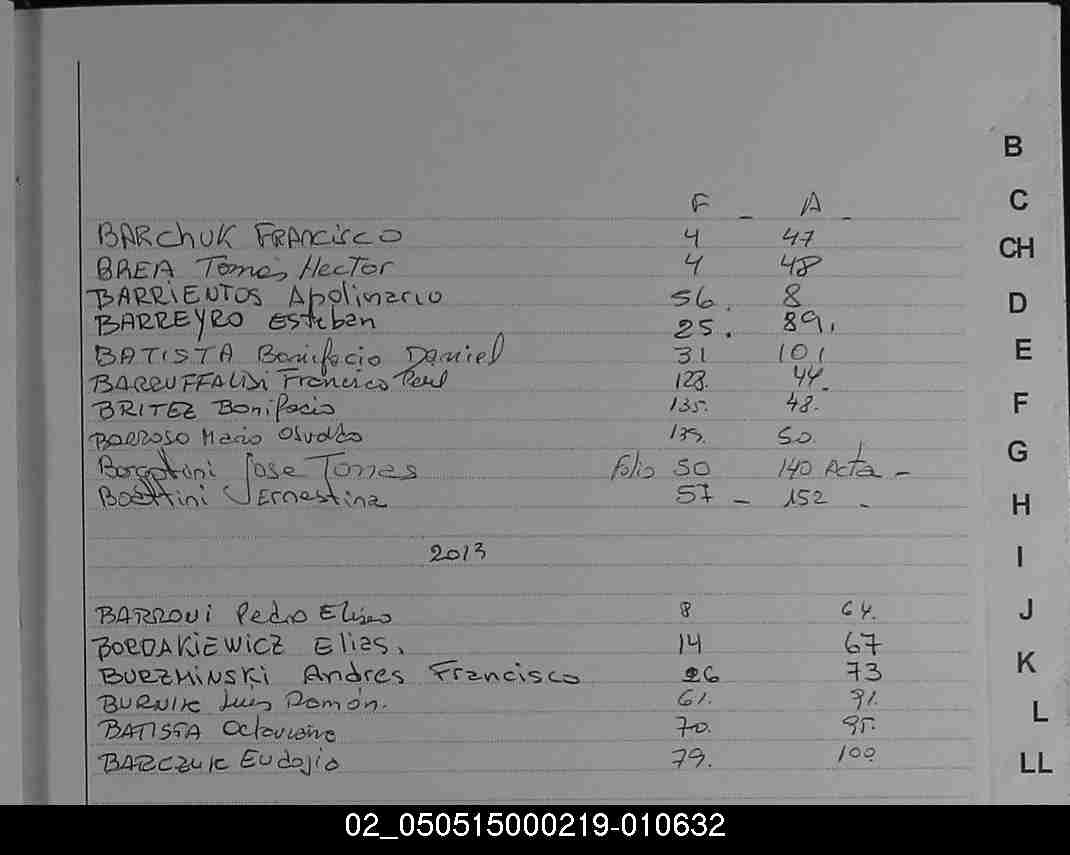 B
C
CH
D
E
F
G
H
I
J
K
L
LL
F - A -
BARchUK FRANCisCO 4 47
BREA Tomás Hector 4 48
BARRiENTOS Apolinario 56. 8
BARREYRO Esteban 25. 89.
BATISTA Bonifacio Daniel 31 101
BARRUFFALDI Francisco Raul 128. 44.
BRITEZ Bonifacio 135. 48.
BARROSO Mario Osvaldo 139. 50.
Jose Tomas Folio 50 140 Acta -
Boettini Ernestina 57 - 152 -
2013
BARRONi Pedro Eliseo 8 64.
BORDAKiEWiCZ Elias. 14 67
BURZMiNSKi Andres Francisco 26 73
BURNIK Luis Ramón. 61. 91.
BATISTA Octaviano 70. 95.
BARCZUK Eudojio 79. 100
02_050515000219-010632